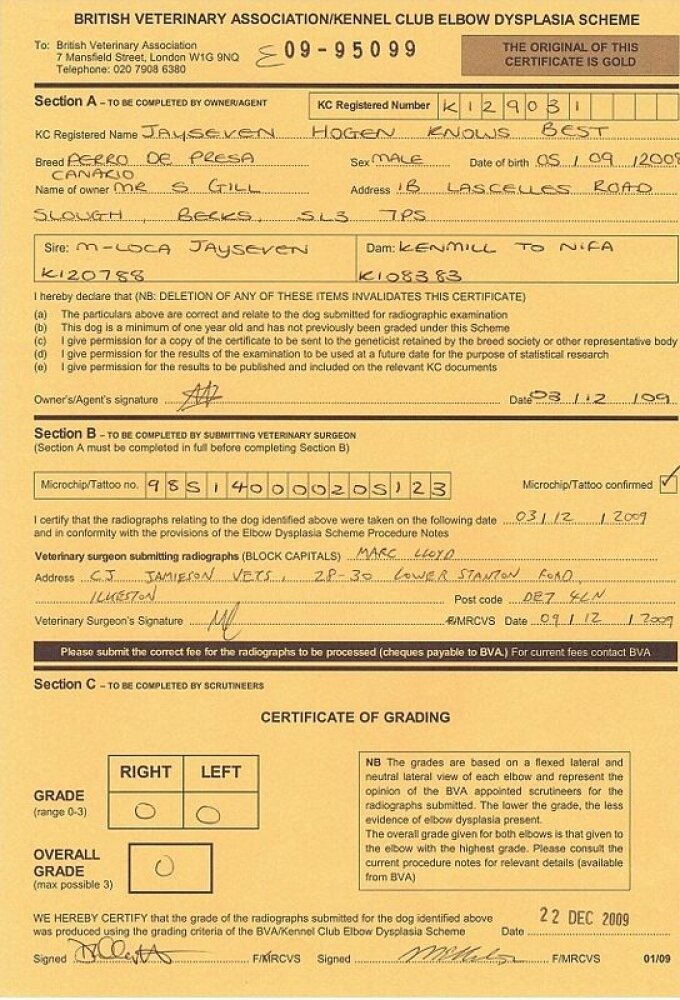 BRITISH VETERINARY ASSOCIATION/KENNEL CLUB ELBOW DYSPLASIA SCHEME
To: British Veterinary Association
7 Mansfield Street, London W1G 9NQ
Telephone: 020 7908 6380
E 09-95099
THE ORIGINAL OF THIS
CERTIFICATE IS GOLD
Section A – TO BE COMPLETED BY OWNER/AGENT
KC Registered Number K129031
KC Registered Name JAYSEVEN HOGEN KNOWS BEST
Breed PERRO DE PRESA CANARIO Sex MALE Date of birth 05/09/2008
Name of owner MR S GILL Address 1B LASCELLES ROAD
SLOUGH, BERKS, SL3 7PS
Sire: M-LOCA JAYSEVEN
K120788
Dam: KENMILL TO NIFA
K108383
I hereby declare that (NB: DELETION OF ANY OF THESE ITEMS INVALIDATES THIS CERTIFICATE)
(a) The particulars above are correct and relate to the dog submitted for radiographic examination
(b) This dog is a minimum of one year old and has not previously been graded under this Scheme
(c) I give permission for a copy of the certificate to be sent to the geneticist retained by the breed society or other representative body
(d) I give permission for the results of the examination to be used at a future date for the purpose of statistical research
(e) I give permission for the results to be published and included on the relevant KC documents
Owner's/Agent's signature Date 03/12/09
Section B – TO BE COMPLETED BY SUBMITTING VETERINARY SURGEON
(Section A must be completed in full before completing Section B)
Microchip/Tattoo no. 985140000205123 Microchip/Tattoo confirmed ✓
I certify that the radiographs relating to the dog identified above were taken on the following date 03/12/2009
and in conformity with the provisions of the Elbow Dysplasia Scheme Procedure Notes
Veterinary surgeon submitting radiographs (BLOCK CAPITALS) MARC LLOYD
Address CJ JAMIESON VETS, 28-30 LOWER STANTON ROAD,
ILKESTON Post code DE7 4LN
Veterinary Surgeon's Signature F/MRCVS Date 09/12/2009
Please submit the correct fee for the radiographs to be processed (cheques payable to BVA.) For current fees contact BVA
Section C – TO BE COMPLETED BY SCRUTINEERS
CERTIFICATE OF GRADING
RIGHT LEFT
GRADE
(range 0-3)
0 0
OVERALL
GRADE
(max possible 3)
0
NB The grades are based on a flexed lateral and
neutral lateral view of each elbow and represent the
opinion of the BVA appointed scrutineers for the
radiographs submitted. The lower the grade, the less
evidence of elbow dysplasia present.
The overall grade given for both elbows is that given to
the elbow with the highest grade. Please consult the
current procedure notes for relevant details (available
from BVA)
WE HEREBY CERTIFY that the grade of the radiographs submitted for the dog identified above
was produced using the grading criteria of the BVA/Kennel Club Elbow Dysplasia Scheme Date 22 DEC 2009
Signed F/MRCVS Signed F/MRCVS 01/09